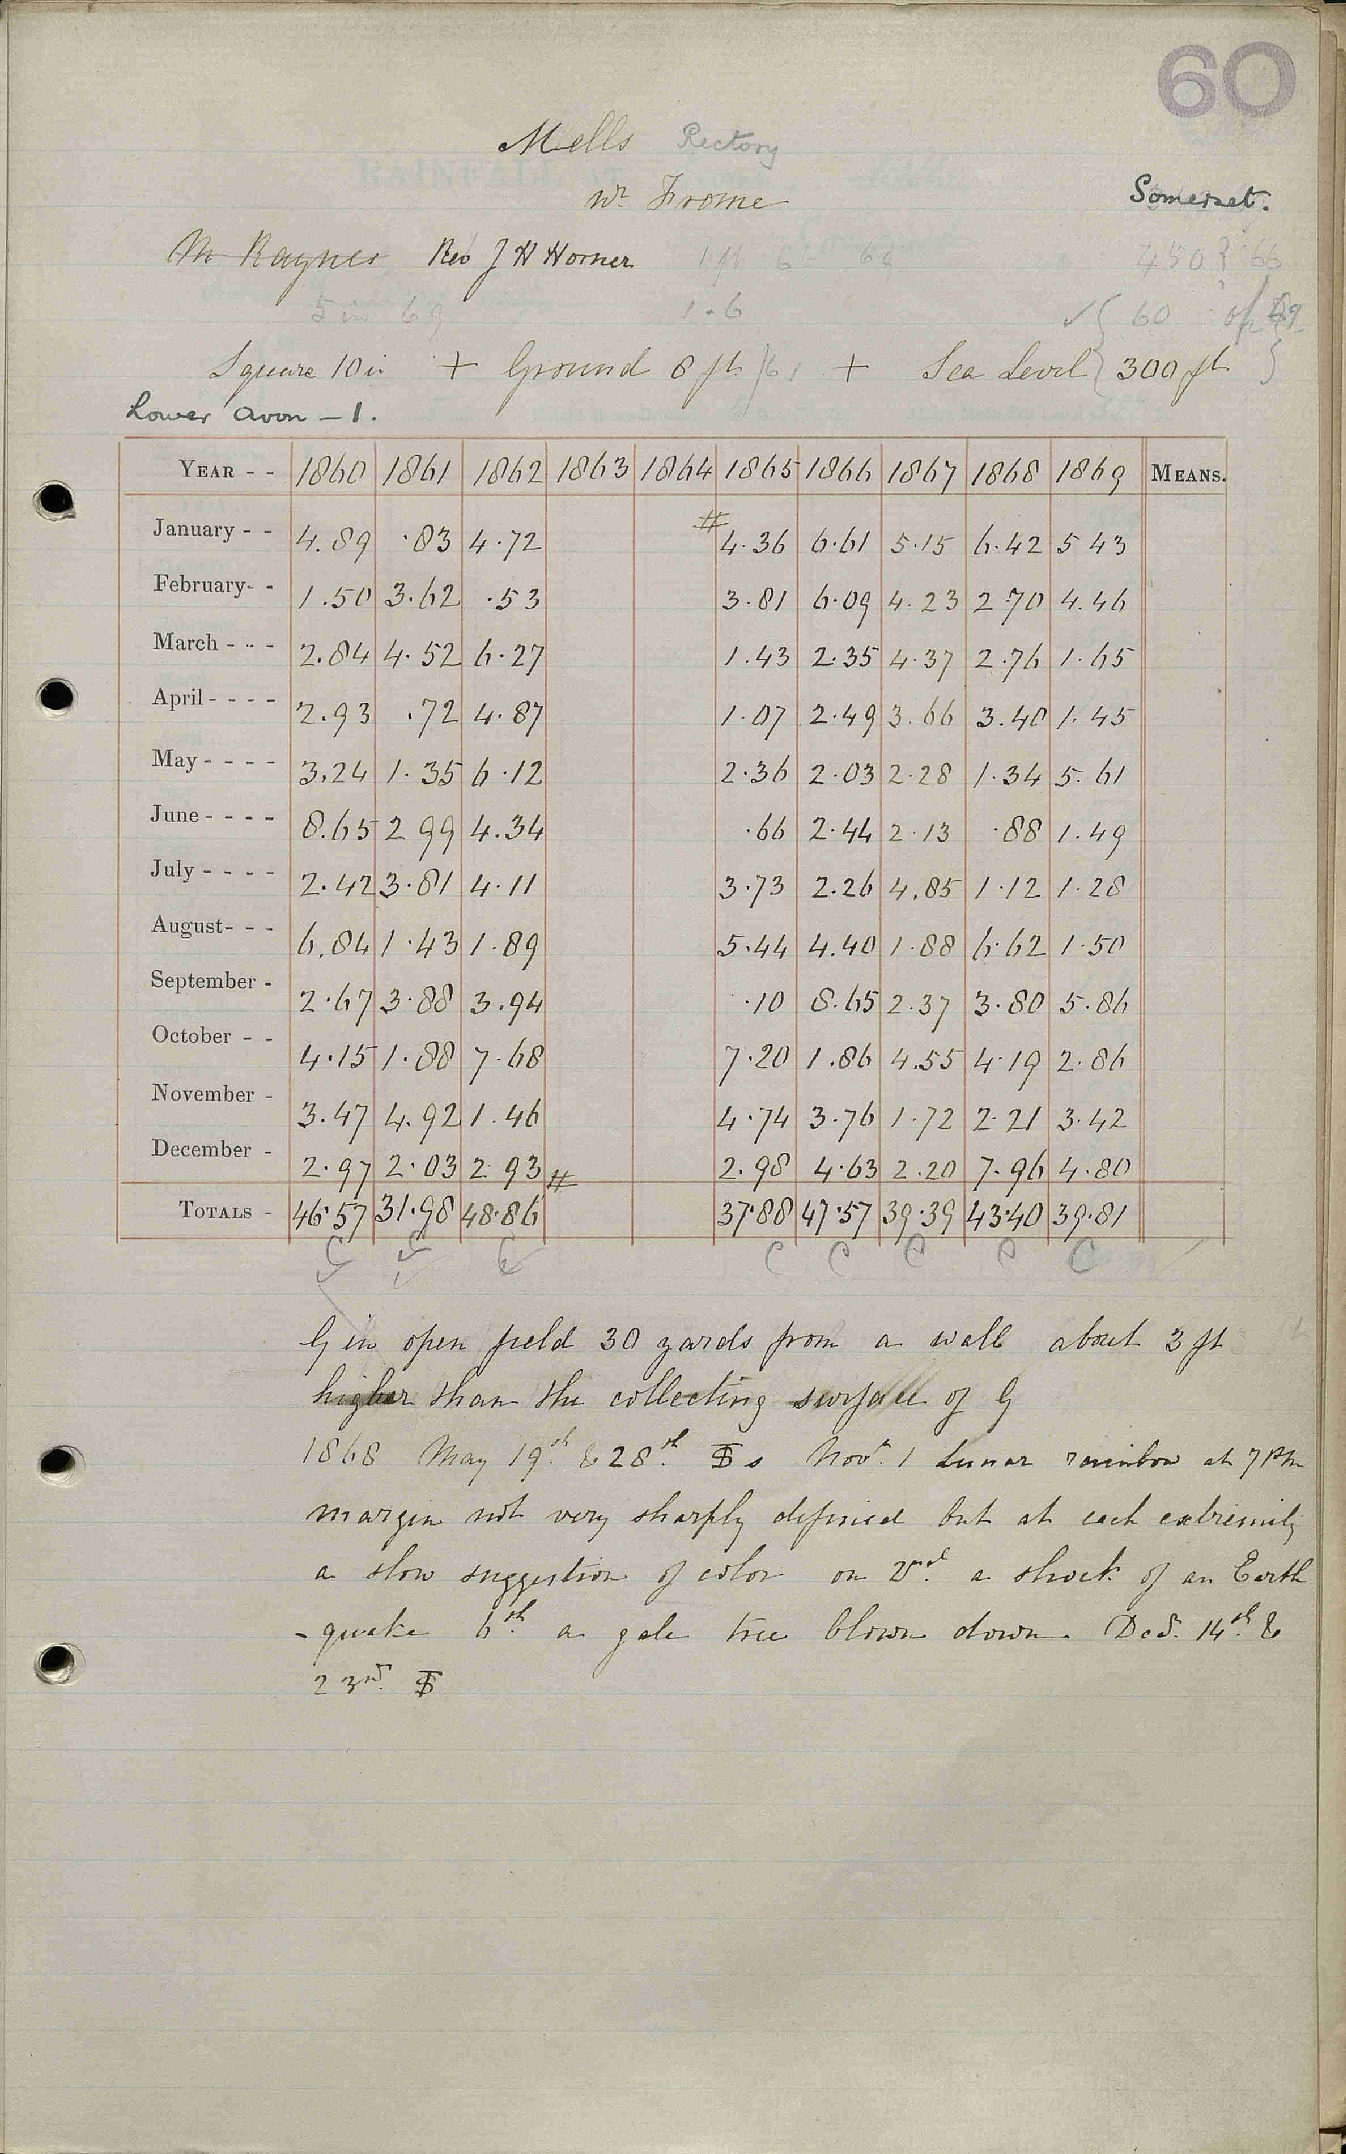 60
Mells Rectory
Nr Frome
Somerset.
Mr Raynes Rev J H Horner
450? 66
5 in 69
1.6
60
Square 10 in + Ground 8 ft /61 + Sea Level 300 ft
Lower Avon - 1.
YEAR - - 1860 1861 1862 1863 1864 1865 1866 1867 1868 1869 MEANS.
January - - 4.89 .83 4.72 # 4.36 6.61 5.15 6.42 5 43
February- - 1.50 3.62 .53 3.81 6.09 4.23 2 70 4.46
March - - - 2.84 4.52 6.27 1.43 2.35 4.37 2.76 1.65
April - - - - 2.93 .72 4.87 1.07 2.49 3.66 3.40 1.45
May - - - - 3.24 1.35 6.12 2.36 2.03 2.28 1.34 5.61
June - - - - 8.65 2 99 4.34 .66 2.44 2.13 .88 1.49
July - - - - 2.42 3.81 4.11 3.73 2.26 4.85 1.12 1.28
August- - - 6.84 1.43 1.89 5.44 4.40 1.88 6.62 1.50
September - 2.67 3.88 3.94 .10 8.65 2.37 3.80 5.86
October - - 4.15 1.88 7.68 7.20 1.86 4.55 4.19 2.86
November - 3.47 4.92 1.46 4.74 3.76 1.72 2.21 3.42
December - 2.97 2.03 2 93 # 2.98 4.63 2.20 7.96 4.80
TOTALS - 46.57 31.98 48.86 37.88 47.57 39.39 43.40 39.81
C C C C C C C C
G in open field 30 yards from a wall about 3 ft
higher than the collecting surface of G
1868 May 19th & 28th. s Novr. 1 Lunar rainbow at 7 PM
margin not very sharply defined but at each extremity
a slow suggestion of color on 2nd. a shock of an Earth
- quake 6th. a gale tree blown down. Dec. 14th. &
23rd.